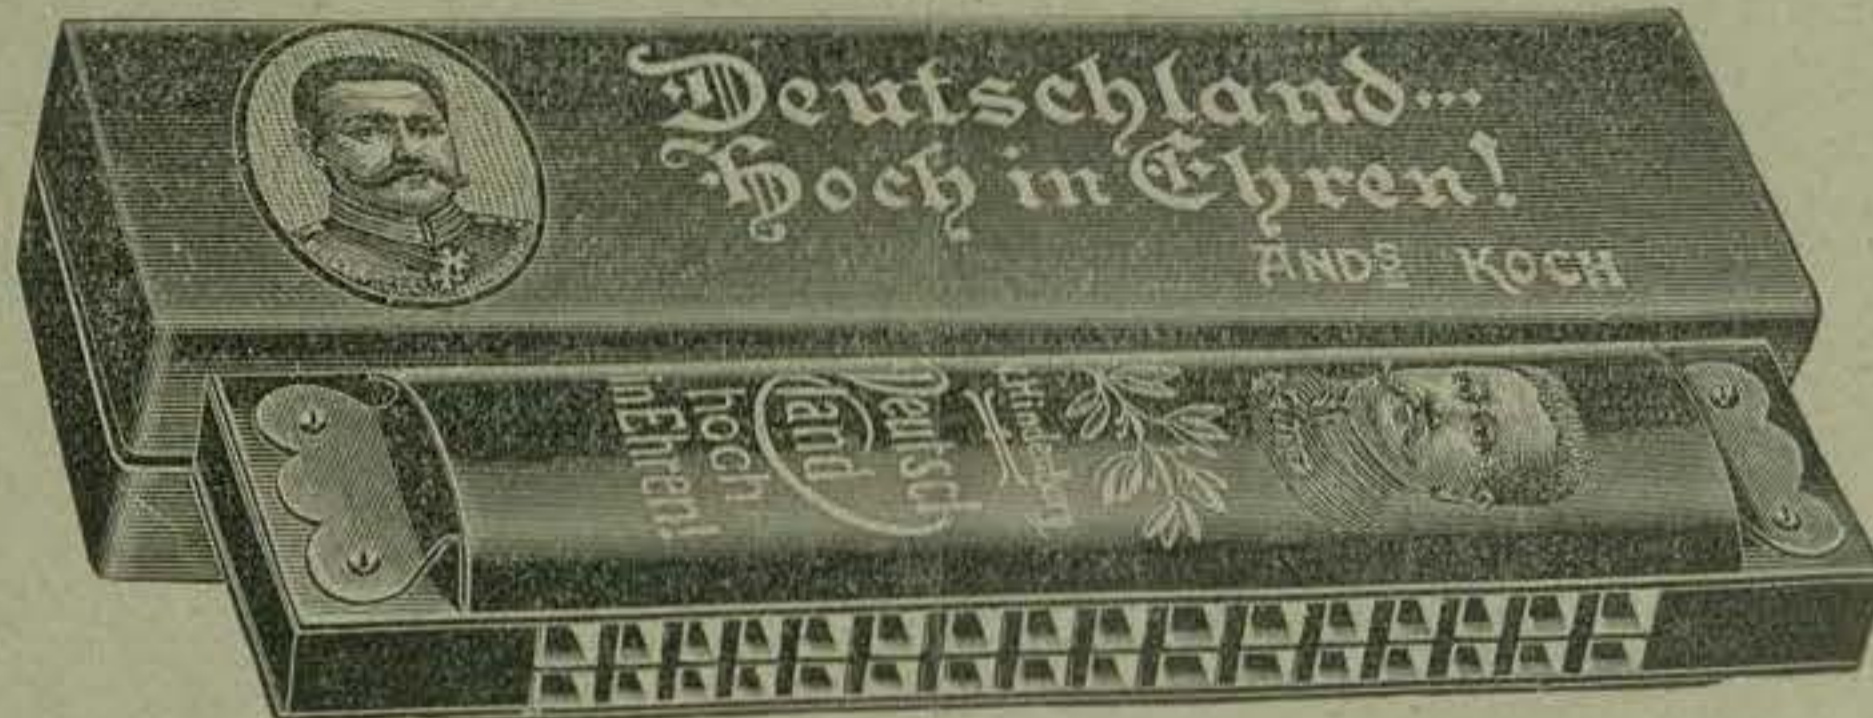 Deutschland...
Hoch in Ehren!
ANDS KOCH
Hindenburg
Deutsch
land
hoch
in Ehren!